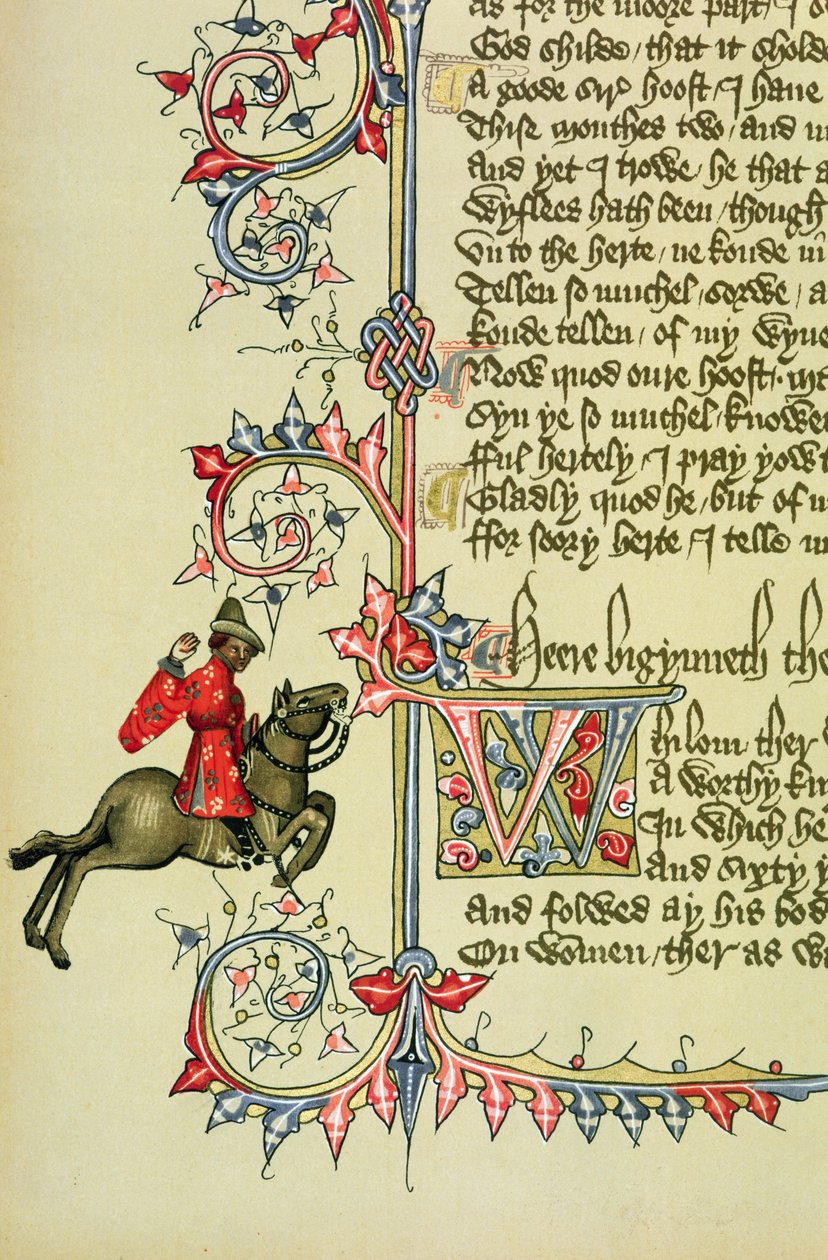 as for the moore part / I s
God shilde / that it sholde
A goode sir hoost / I haue
Thise monthes two / and m
And yet I trowe / he that a
Wyflees hath been / though
Vn to the herte / ne koude in
Tellen so muchel / sorwe / a
koude tellen / of my wyue
Now quod oure hoost / ma
Syn ye so muchel / knowen
fful hertely / I pray yow t
Gladly quod he / but of m
ffor soory herte / I telle m
Heere bigynneth the
Whilom ther
A worthy kn
In which he
And sixty y
And folwed ay his bod
On wommen / ther as wa